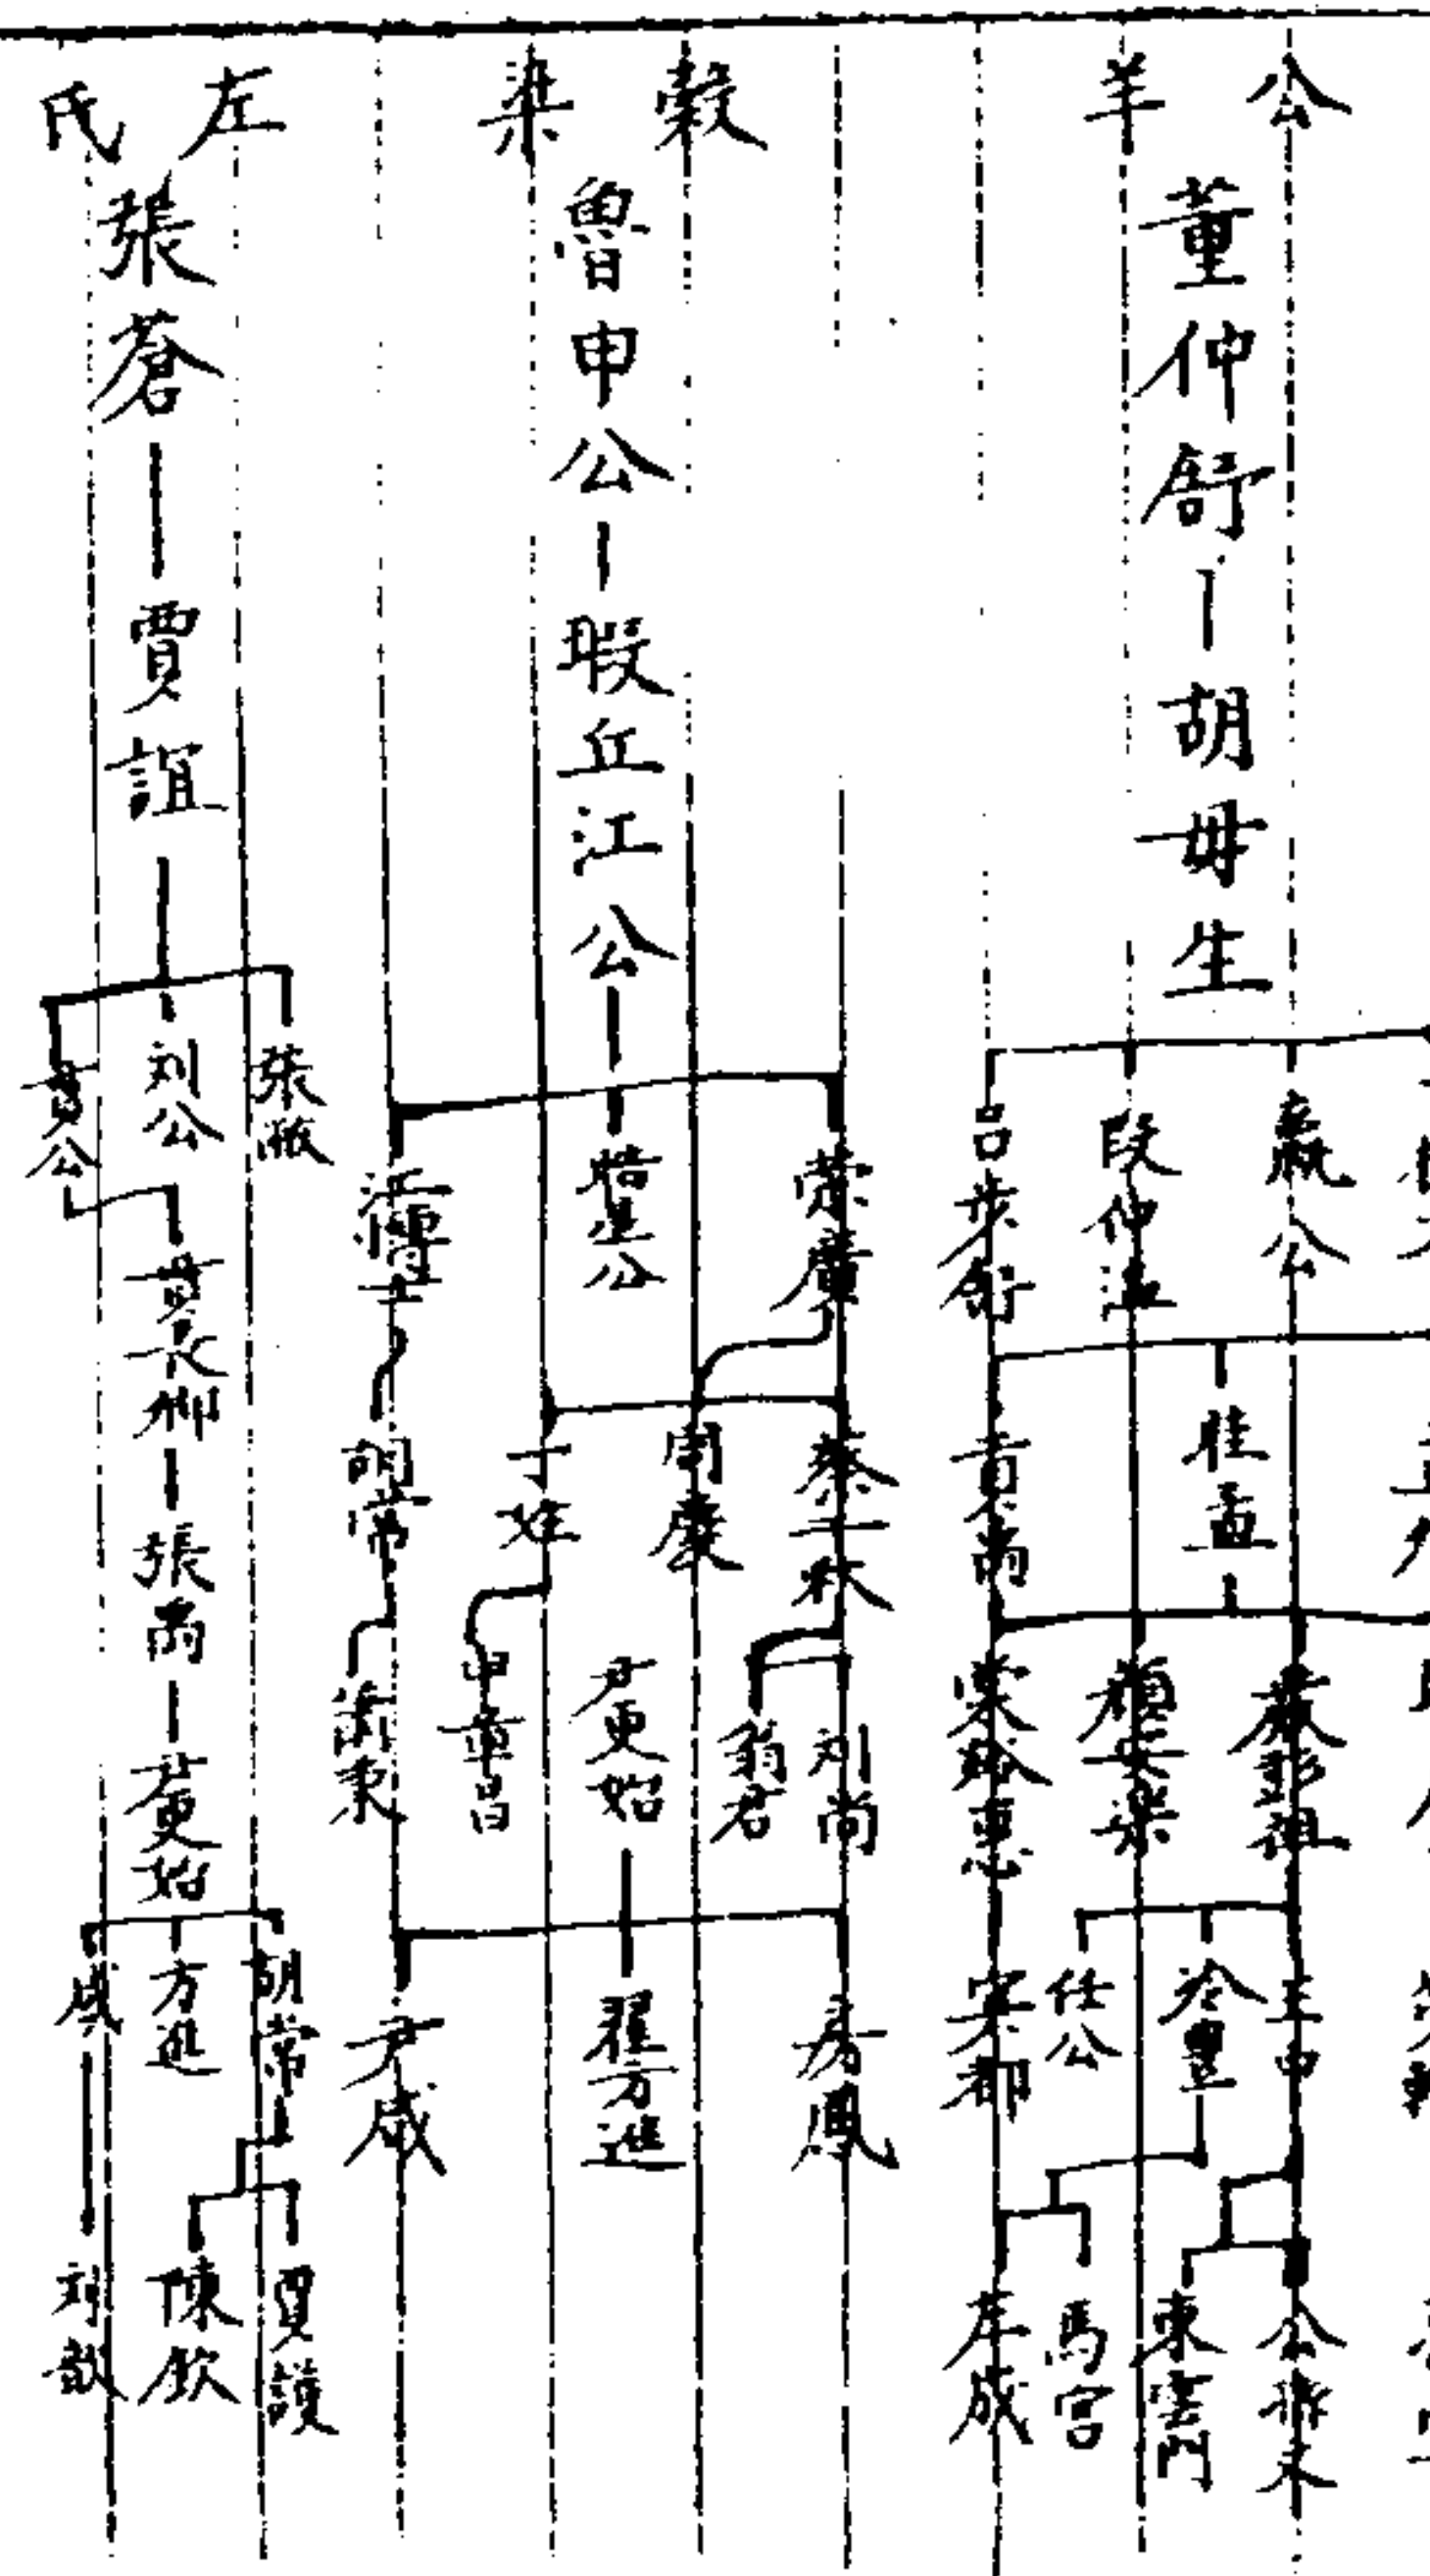 公羊
董仲舒
胡毋生
嬴公
段仲溫
呂步舒
眭孟
貢禹
嚴彭祖
顏安樂
棠谿惠
王中
泠豐
任公
冥都
公孫文
東雲門
馬宮
左咸
穀梁
魯申公
瑕丘江公
榮廣
皓星公
江博士
蔡千秋
周慶
丁姓
胡常
刘尚
翁君
尹更始
申章昌
蕭秉
房鳳
翟方進
尹咸
左氏
張蒼
賈誼
張敞
刘公
貫公
貫長卿
張禹
尹更始
胡常
方進
咸
賈護
陳欽
刘歆